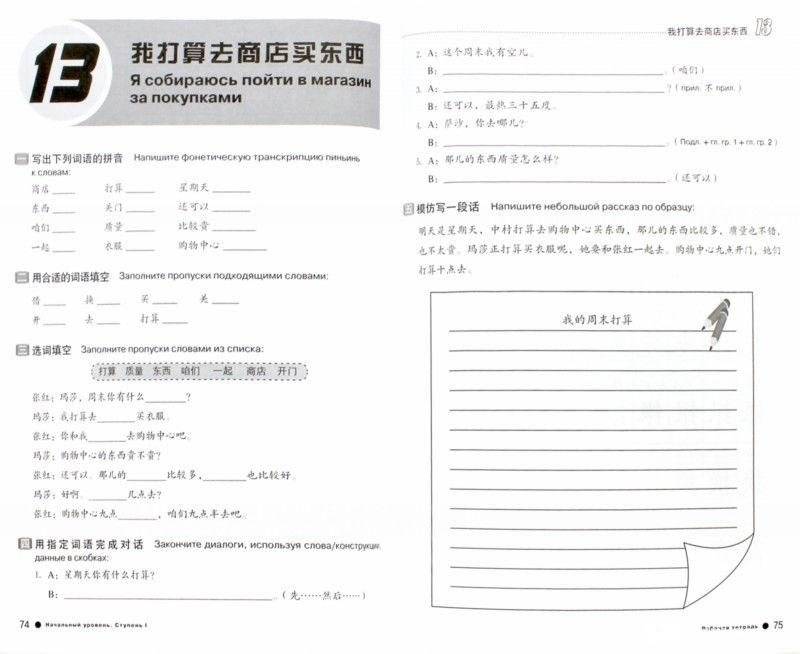 13
我打算去商店买东西
Я собираюсь пойти в магазин
за покупками
一 写出下列词语的拼音 Напишите фонетическую транскрипцию пиньинь
к словам:
商店____ 打算____ 星期天____
东西____ 关门____ 还可以____
咱们____ 质量____ 比较贵____
一起____ 衣服____ 购物中心____
二 用合适的词语填空 Заполните пропуски подходящими словами:
借____ 换____ 买____ 关____
开____ 去____ 打算____
三 选词填空 Заполните пропуски словами из списка:
打算 质量 东西 咱们 一起 商店 开门
张红：玛莎，周末你有什么____？
玛莎：我打算去____买衣服。
张红：你和我____去购物中心吧。
玛莎：购物中心的东西贵不贵？
张红：还可以。那儿的____比较多，____也比较好。
玛莎：好啊。____几点去？
张红：购物中心九点____，咱们九点半去吧。
四 用指定词语完成对话 Закончите диалоги, используя слова/конструкции,
данные в скобках:
1. A：星期天你有什么打算？
B：____。（先……然后……）
74 ● Начальный уровень. Ступень I
我打算去商店买东西 13
2. A：这个周末我有空儿。
B：____。（咱们）
3. A：____？（прил. 不 прил.）
B：还可以，最热三十五度。
4. A：萨沙，你去哪儿？
B：____。（Подл. + гл. гр. 1 + гл. гр. 2）
5. A：那儿的东西质量怎么样？
B：____。（还可以）
五 模仿写一段话 Напишите небольшой рассказ по образцу:
明天是星期天，中村打算去购物中心买东西，那儿的东西比较多，质量也不错，
也不太贵。玛莎正打算买衣服呢，她要和张红一起去。购物中心九点开门，她们
打算十点去。
我的周末打算
Рабочая тетрадь ● 75